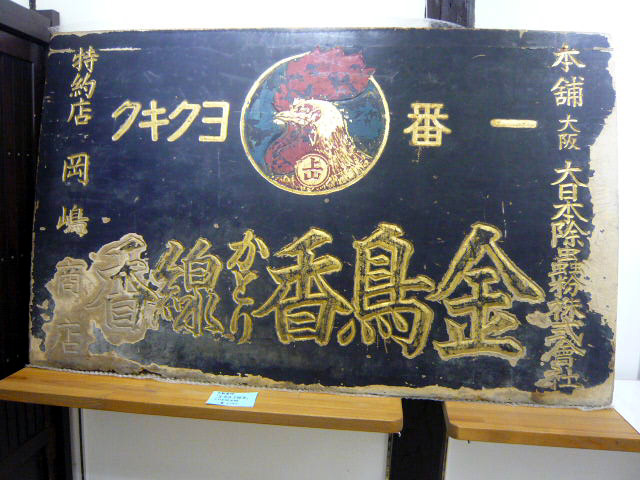 本舗 大阪 大日本除虫粉株式會社
一番
ヨクキク
上山
金鳥香
かとり
線香
特約店 岡嶋商店